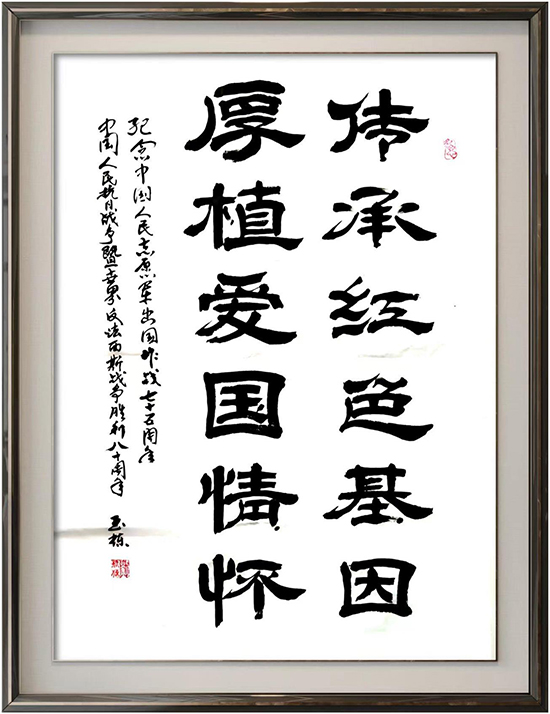 传承红色基因
厚植爱国情怀
纪念中国人民志愿军出国作战七十五周年
中国人民抗日战争暨世界反法西斯战争胜利八十周年
玉栋